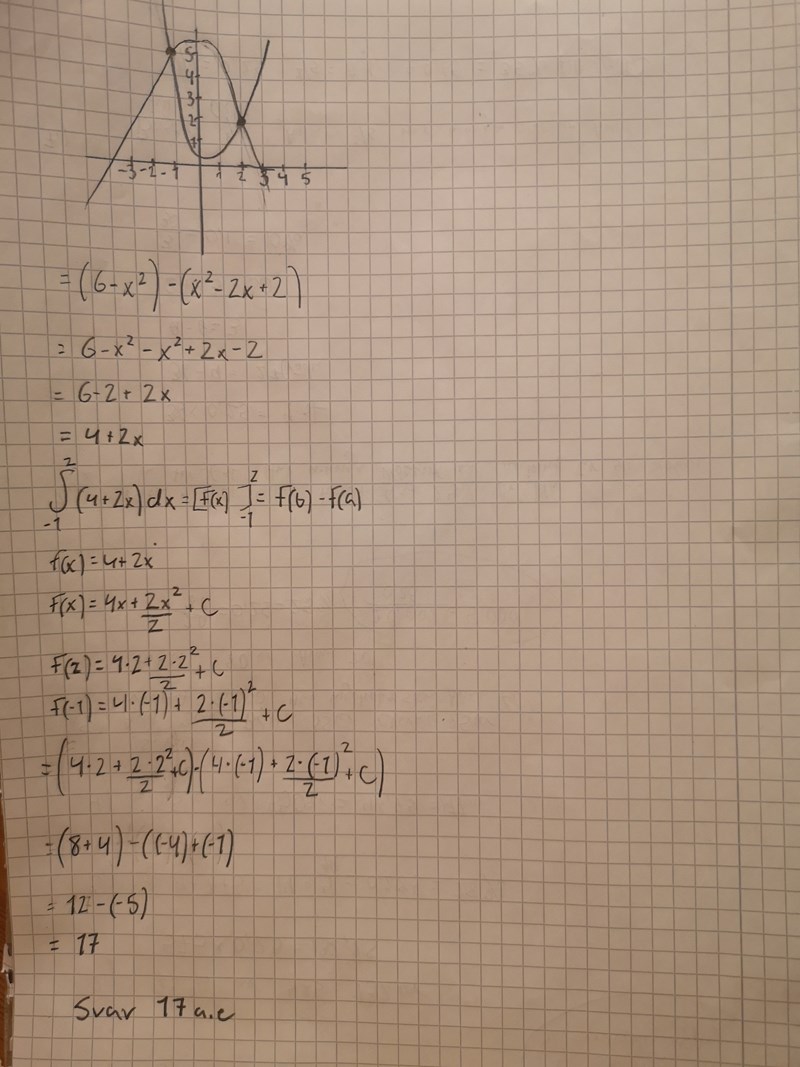 5
4
3
2
1
-3 -2 -1 1 2 3 4 5
= (6-x²) - (x²-2x+2)
= 6-x²-x²+2x-2
= 6-2+2x
= 4+2x
∫₋₁² (4+2x) dx = [F(x)]₋₁² = F(b) - F(a)
f(x) = 4+2x
F(x) = 4x + 2x²/2 + C
F(2) = 4·2 + 2·2²/2 + C
F(-1) = 4·(-1) + 2·(-1)²/2 + C
= (4·2 + 2·2²/2 + C) - (4·(-1) + 2·(-1)²/2 + C)
= (8+4) - ((-4)+(-1)
= 12-(-5)
= 17
Svar 17 a.e